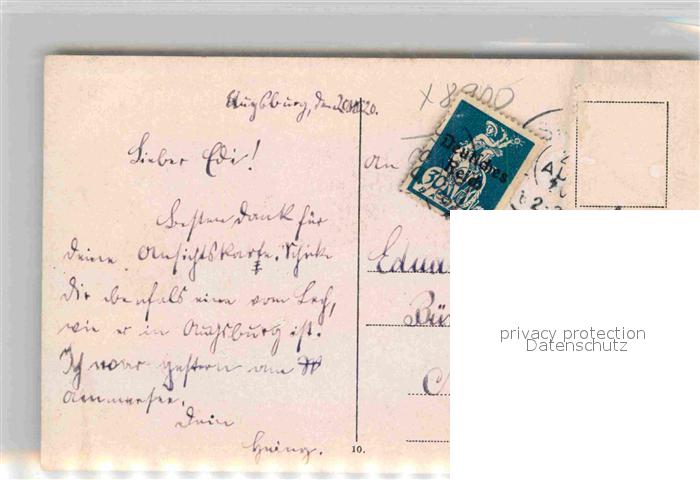 Augsburg, den 20.
X 8900
Lieber Edi!
An
Deutsches
Reich
50
Besten Dank für
deine Ansichtskarte. Schicke
dir ebenfals eine vom Lech,
wie er in Augsburg ist.
Ich war gestern am
Ammersee.
Dein
Heinz.
Edua
Bü
10.
privacy protection
Datenschutz